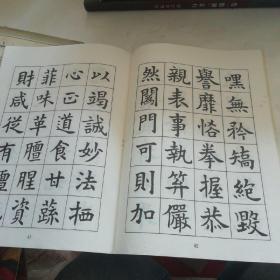 嘿無矜矯絕毀
譽靡恪拳握恭
親表事執筭儼
然闔門可則加
以竭誠妙法栖
心正道食甘蔬
菲味草膻腥資
財咸從有